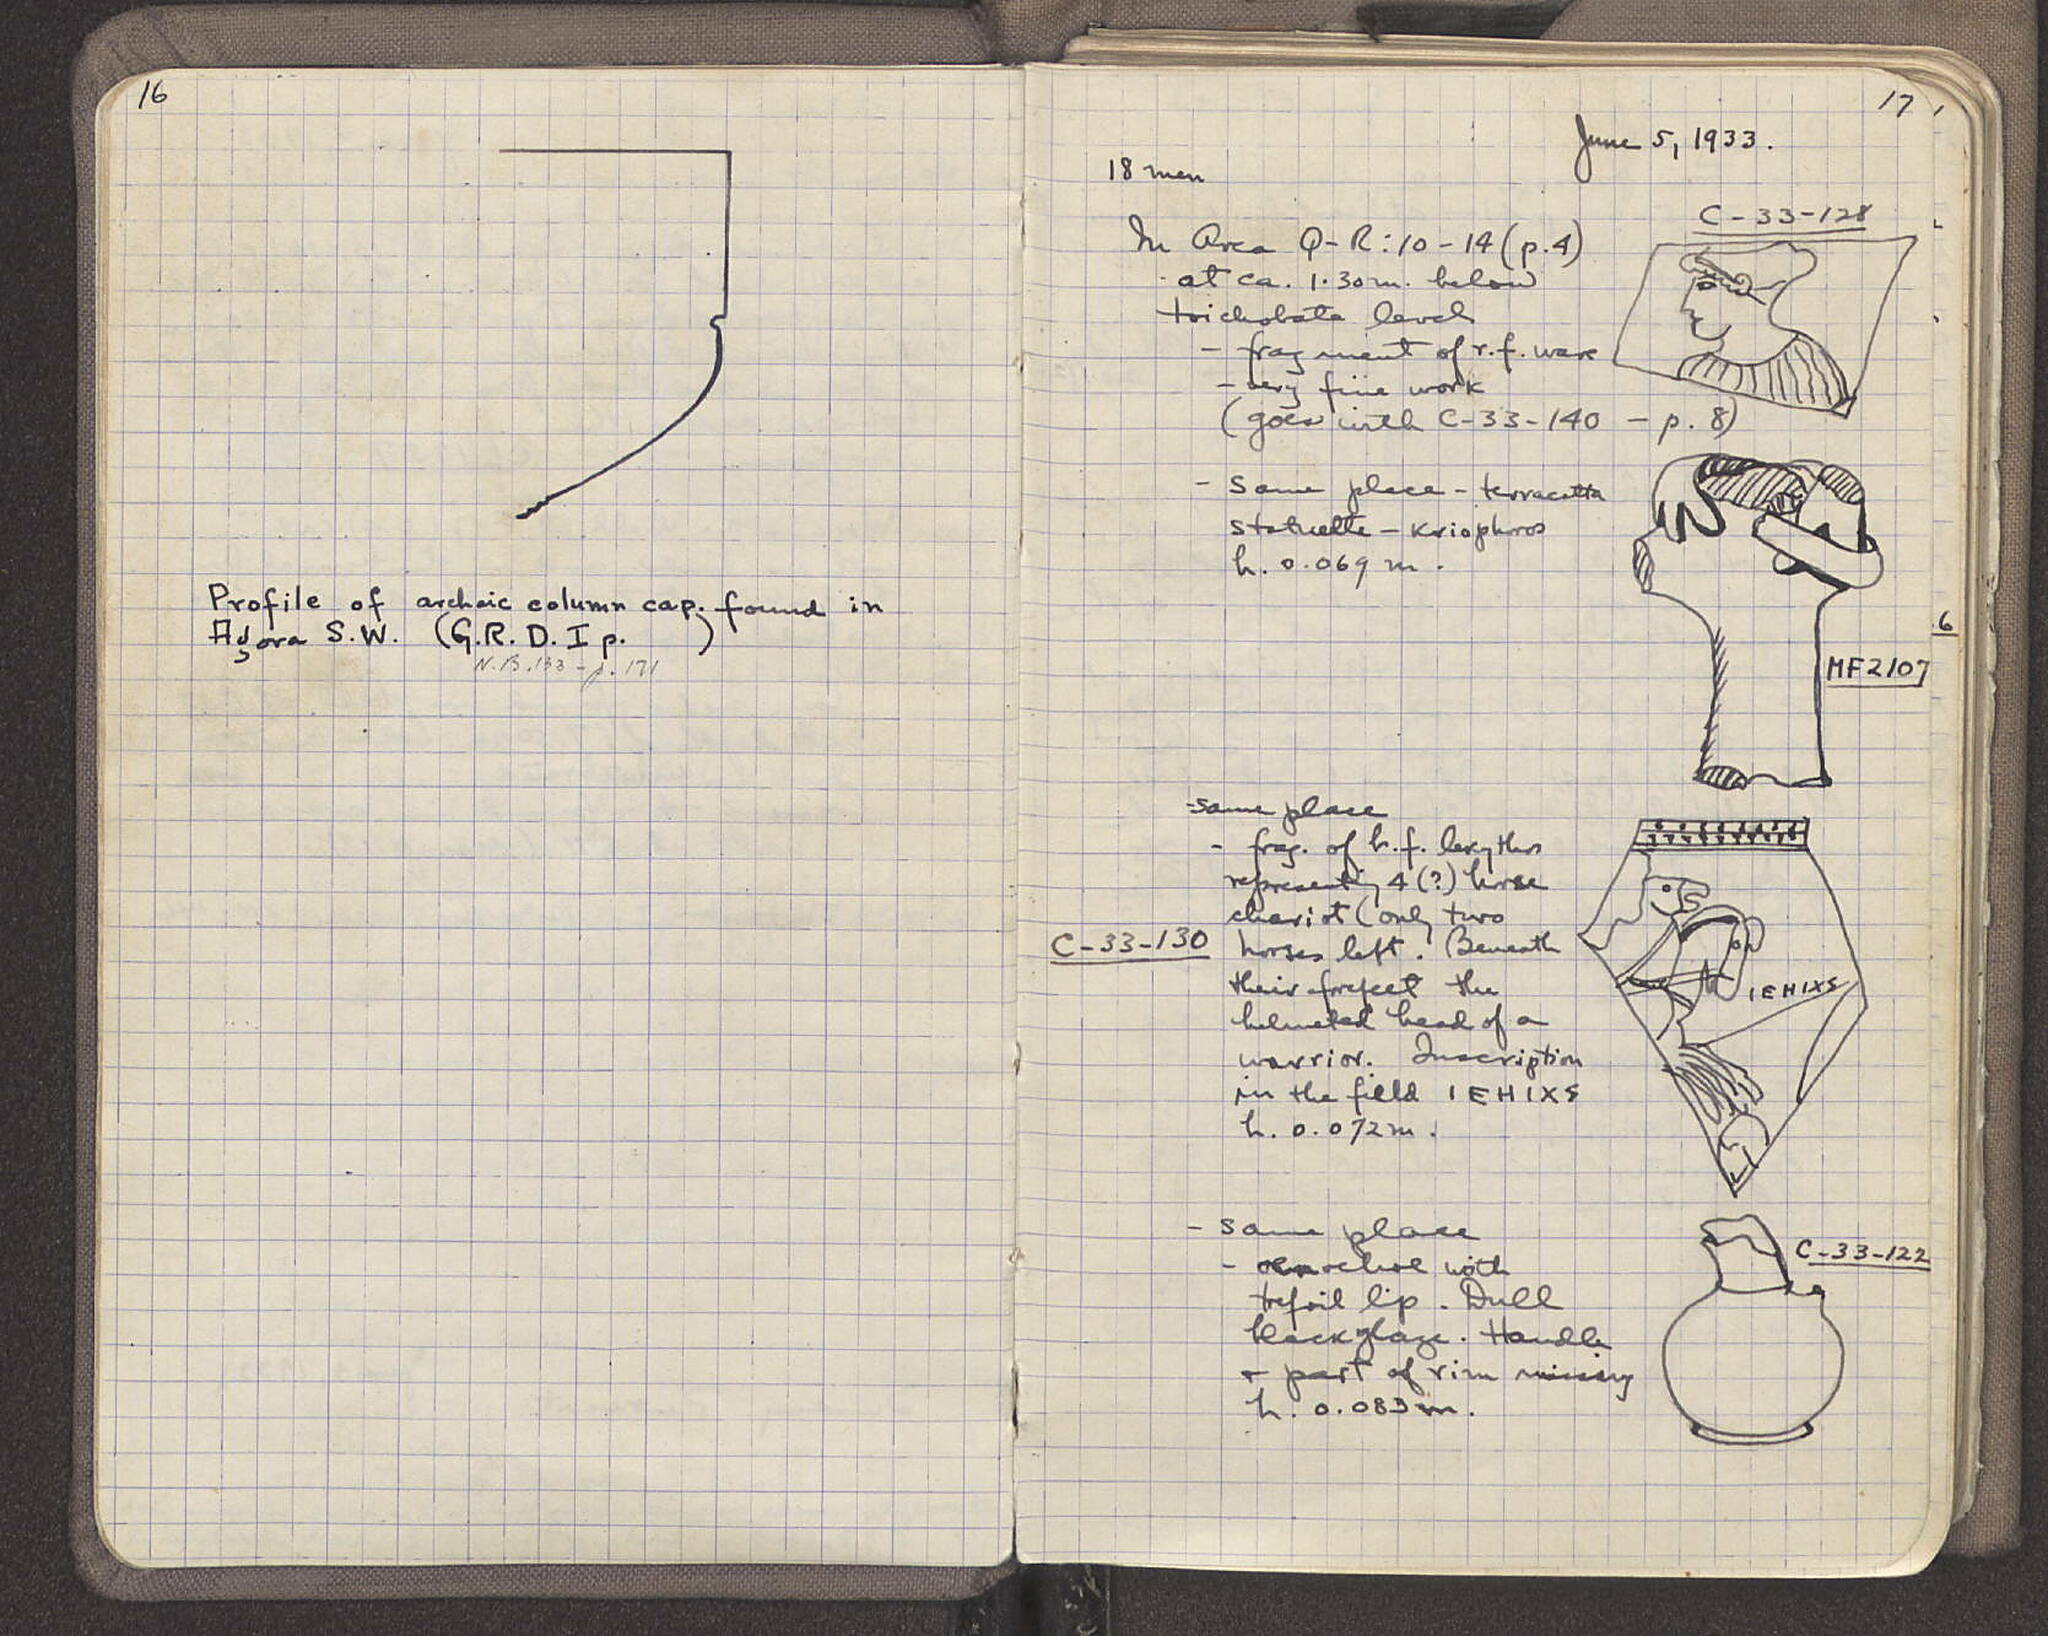 16
Profile of archaic column cap. found in
Agora S.W. (G.R.D. I p. )
N.B. 133 - p. 171
17
June 5, 1933.
18 men
C-33-128
In Area Q-R:10-14 (p.4)
at ca. 1.30m. below
stylobate level
- fragment of r.f. ware
- very fine work
(goes with C-33-140 - p. 8)
- Same place - terracotta
statuette - kriophoros
h. 0.069 m.
6
MF2107
- same place
- frag. of b.f. lekythos
representing 4(?) horse
chariot (only two
C-33-130 horses left. Beneath
their forefeet the
helmeted head of a
warrior. Inscription
in the field IEHIXS
h. 0.072m.
IEHIXS
- same place
- oenochoe with
trefoil lip. Dull
black glaze. Handle
+ part of rim missing
h. 0.083m.
C-33-122